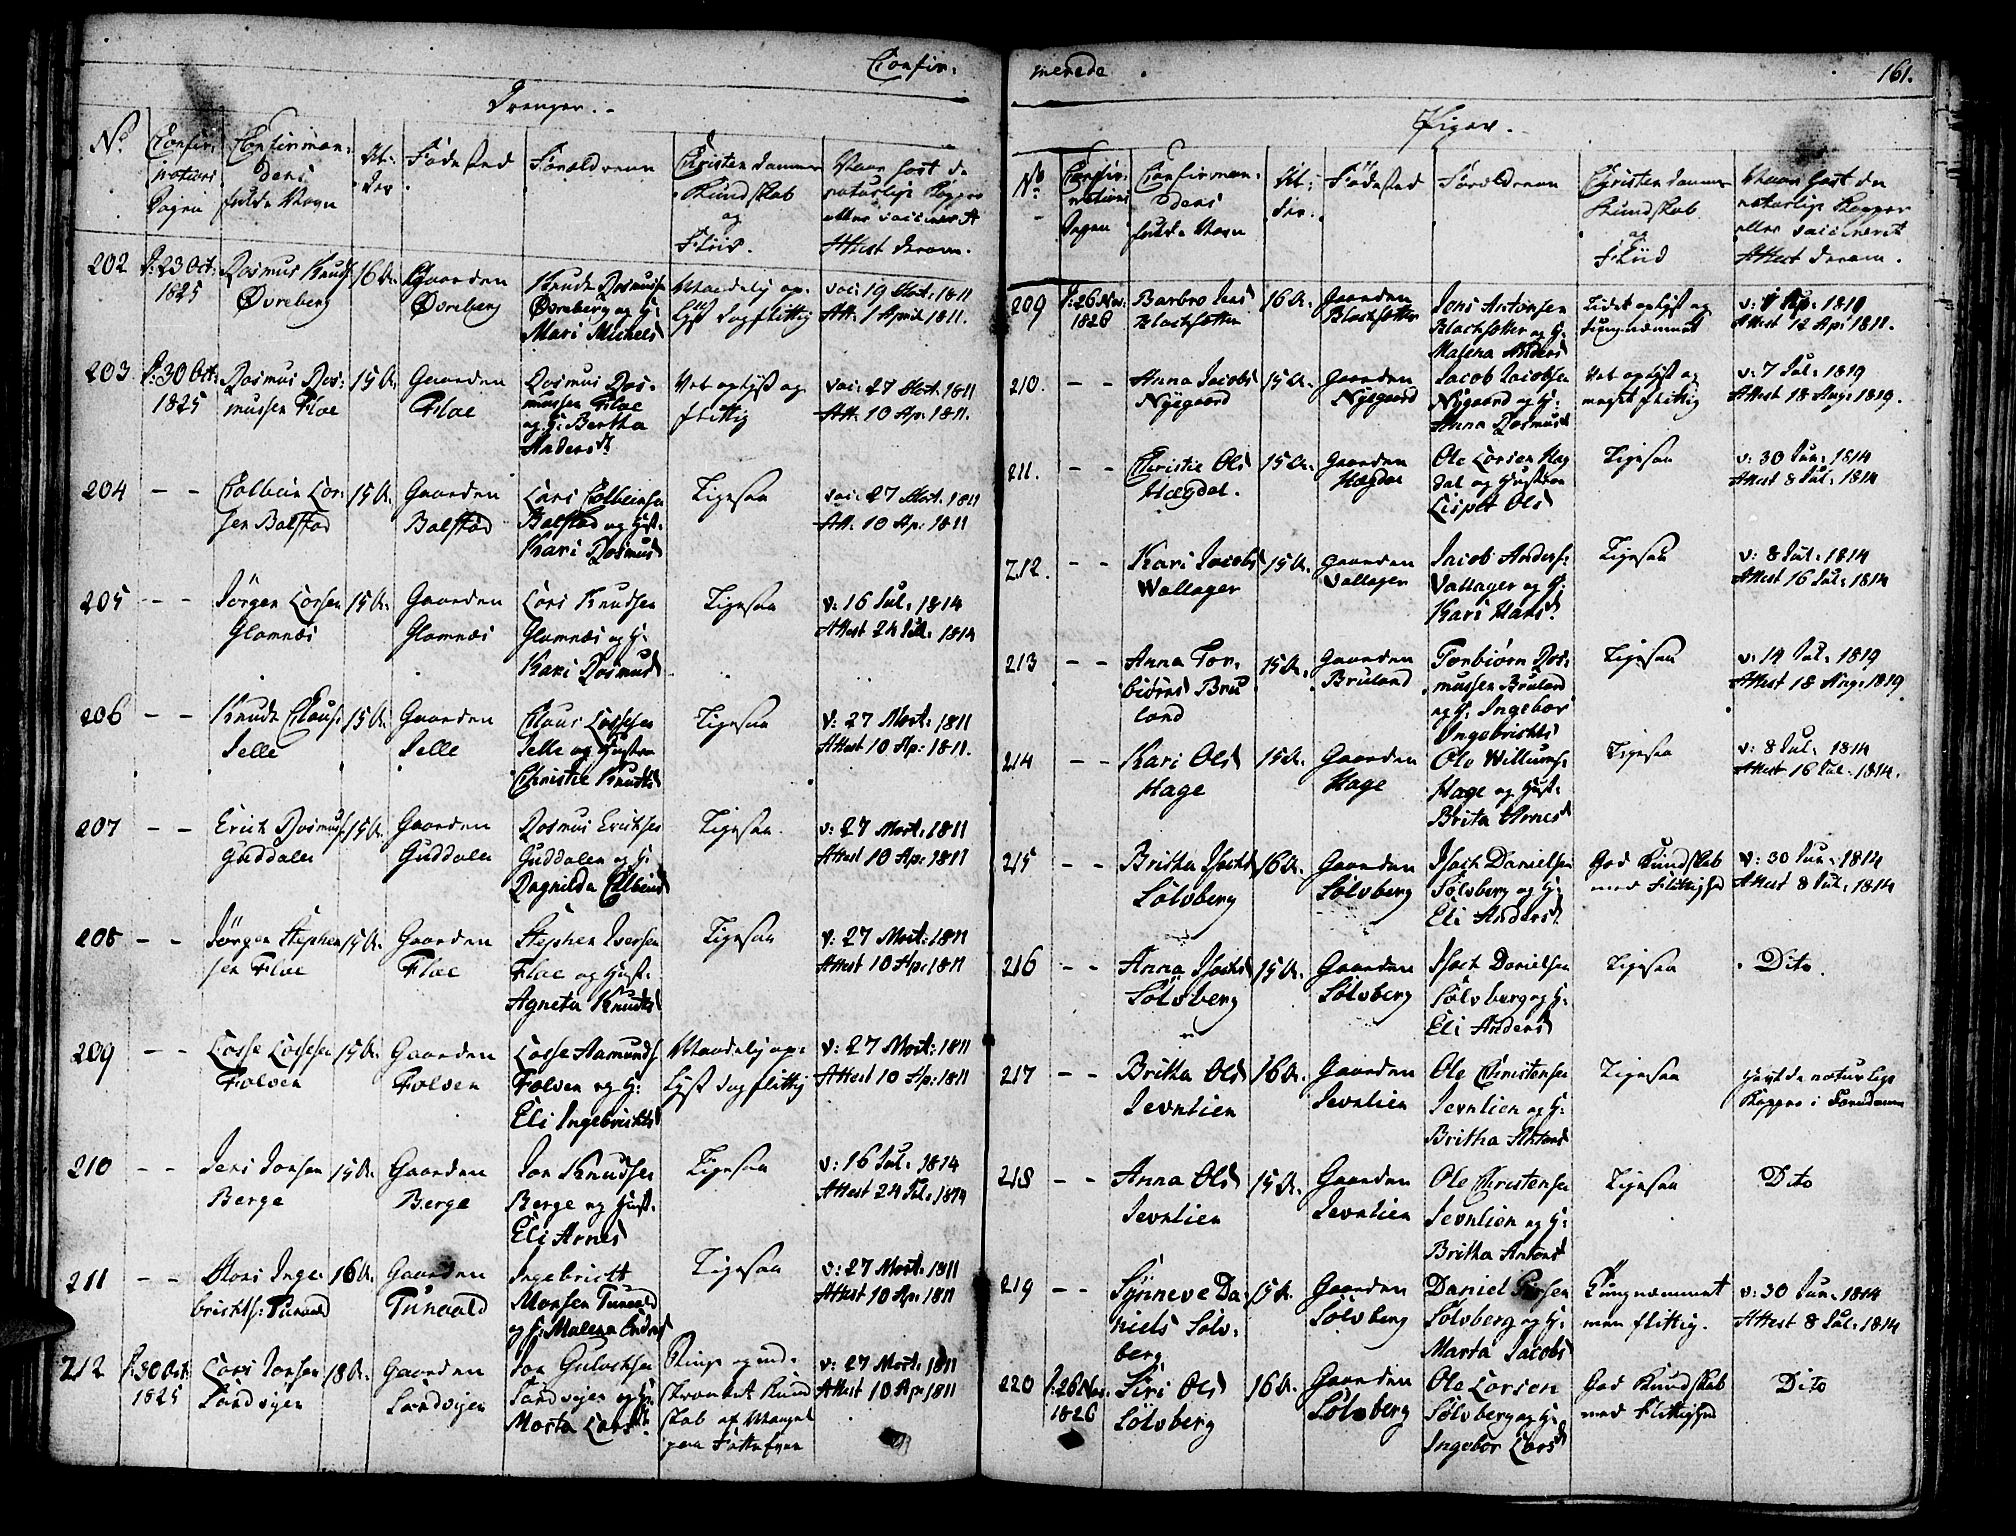 Confir-
Drenger.
No
Confir-
mations
Dagen
Confirman-
dens
fulde Navn
Al-
der
Fødested
Forældrene
Christendommes
Kundskab
og
Fliid.
Naar havt de
naturlige Kopper
eller vaccineret
Attest derom.
202 d: 23 Oct: 1825
Rasmus Knuds:
Øvreberg
16 A.
Gaarden
Øvreberg
Knud Rasmus:
Øvreberg og H:
Mari Michels
vac: 19 Mart: 1811
Att: 1 April 1811.
203 d: 30 Oct: 1825
Rasmus Ras-
mussen Floe
15 A.
Gaarden
Floe
Rasmus Ras-
mussen Floe
og H: Bertha
Andersd.
Vel oplyst og
flittig
vac: 27 Mart: 1811
Att: 10 Ap: 1811.
204 - -
Colbein Lar-
sen Balstad
15 A.
Gaarden
Balstad
Lars Colbeinsen
Balstad og Hust:
Kari Rasmusd
Ligesaa
vac: 27 Mart: 1811
Att: 10 Ap: 1811
205 - -
Jörgen Larsen
Glomnæs
15 A.
Gaarden
Glomnæs
Lars Knudsen
Glomnæs og H:
Kari Rasmusd
Ligesaa
v: 16 Jul: 1814
Attest 24 Jul: 1814
206 - -
Knud Claus:
Selle
15 A.
Gaarden
Selle
Claus Lassesen
Selle og Hustru
Christie Knudsd
Ligesaa
v: 27 Mart: 1811
Attest 10 Ap: 1811.
207 - -
Erich Rasmus:
Guddalen
15 A.
Gaarden
Guddalen
Rasmus Erichsen
Guddalen og H:
Ragnilda Colbeinsd
Ligesaa
v: 27 Mart: 1811
Attest 10 Ap: 1811
208 - -
Jörgen Stephen-
sen Floe
15 A.
Gaarden
Floe
Stephen Iversen
Floe og Hust:
Agneta Knudsd
Ligesaa
v: 27 Mart: 1811
Attest 10 Ap: 1811
209 - -
Lasse Lassesen
Folven
15 A.
Gaarden
Folven
Lasse Aamunds:
Folven og H:
Eli Ingebrichtsd
v: 27 Mart: 1811
Attest 10 Ap: 1811
210 - -
Jens Jonsen
Berge
15 A.
Gaarden
Berge
Jon Knudsen
Berge og Hust:
Eli Arnesd
Ligesaa
v: 16 Jul: 1814
Attest 24 Jul: 1814
211 - -
Mons Inge-
brichts: Tunoald
16 A.
Gaarden
Tunoald
Ingebricht
Monsen Tunoald
og H: Malena
Ligesaa
v: 27 Mart: 1811
Attest 10 Ap: 1811
212 d: 30 Oct: 1825
Lars Jonsen
Sandvigen
18 A.
Gaarden
Sandvigen
Jon
Sandvigen og H:
Marta Larsd.
Ringe og ind-
skrænket Kund
skab af Mangel
paa Fatteevne
v: 27 Mart: 1811
Attest 10 Ap: 1811
merede
161.
Piger.
No
Confir-
mations
Dagen
Confirman-
dens
fulde Navn
Al-
der.
Fødested
Forældrene
Christendommes
Kundskab
og
Fliid
Naar havt de
naturlige Kopper
eller vaccineret
Attest derom.
209 d: 26 Nov: 1826
Barbro Jensd
Blachsætter
16 A.
Gaarden
Blachsætter
Jens Antonsen
Blachsætter og H:
Malena Andersd
Lidet oplyst og
tungnæmmet
Attest 12 Ap: 1811.
210. - -
Anna Jacobsd
Nygaard
15 A.
Gaarden
Nygaard
Jacob Jacobsen
Nygaard og H:
Anna Rasmusd
Vel oplyst og
meget flittig
v: 7 Jul: 1819
Attest 18 Aug: 1819.
211. - -
Christie Olsd
Hægdal.
15 A.
Gaarden
Hægdal
Ole Larsen Hæg
dal og Hustru
Lispet Olsd
Ligesaa
v: 30 Jun: 1814
Attest 8 Jul: 1814
212. - -
Kari Jacobsd
Wallager
15 A.
Gaarden
Vallager
Jacob Anders:
Vallager og H:
Kari Hansd.
Ligesaa
v: 8 Jul: 1814
Attest 16 Jul: 1814
213 - -
Anna Tor-
biörnsd Bru
land
15 A.
Gaarden
Bruland
Torbiörn Ras-
mussen Bruland
og H: Ingebor
Ingebrichtsd
Ligesaa
v: 14 Jul: 1819
Attest 18 Aug: 1819
214 - -
Kari Olsd
Hage
15 A.
Gaarden
Hage
Ole Willums:
Hage og Hust:
Brita Arnesd
Ligesaa
v: 8 Jul: 1814
Attest 16 Jul: 1814.
215 - -
Britha Isachsd
Sölvberg
16 A.
Gaarden
Sölvberg
Isach Danielsen
Sölvberg og H:
Eli Andersd.
God Kundskab
med Flittighed
v: 30 Jun: 1814
Attest 8 Jul: 1814
216 - -
Anna Isachsd
Sölvberg
15 A.
Gaarden
Sölvberg
Isach Danielsen
Sölvberg og H:
Eli Andersd
Ligesaa
Dito.
217 - -
Britha Olsd
Sevnlien
16 A.
Gaarden
Sevnlien
Ole Christensen
Sevnlien og H:
Britha Antonsd
Ligesaa
havt de naturlige
Kopper i
218 - -
Anna Olsd
Sevnlien
15 A.
Gaarden
Sevnlien
Ole Christensen
Sevnlien og H:
Britha Antonsd
Ligesaa
Dito
219 - -
Synneve Da-
niels Sölv-
berg
15 A.
Gaarden
Sölvberg
Daniel
Sölvberg og H:
Marta Jacobsd
Tungnæmmet
men flittig.
v: 30 Jun: 1814
Attest 8 Jul: 1814
220 d: 26 Nov: 1826
Siri Olsd
Sölvberg
16 A.
Gaarden
Sölvberg
Ole Larsen
Sölvberg og H:
Ingebor Larsd
God Kundskab
med Flittighed
Dito